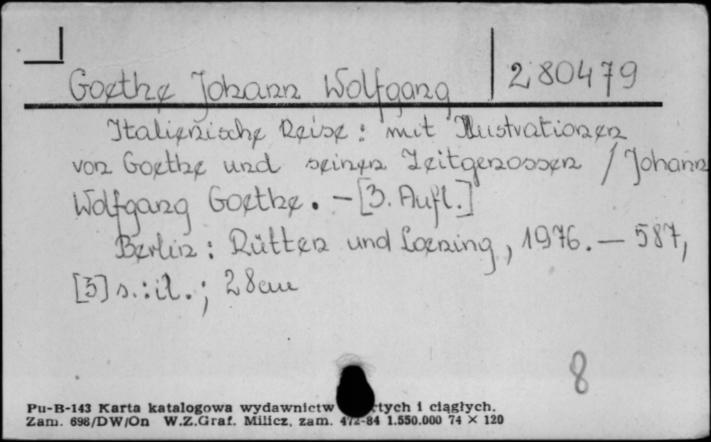 Goethe Johann Wolfgang 280479
Italienische Reise : mit Illustrationen
von Goethe und seinen Zeitgenossen / Johann
Wolfgang Goethe. – [3. Aufl.]
Berlin : Rütten und Loening, 1976. – 587,
[5] s. : il. ; 28 cm
8
Pu-B-143 Karta katalogowa wydawnictw i ciągłych.
Zam. 698/DW/On W.Z.Graf. Milicz, zam. 472-84 1.550.000 74 × 120